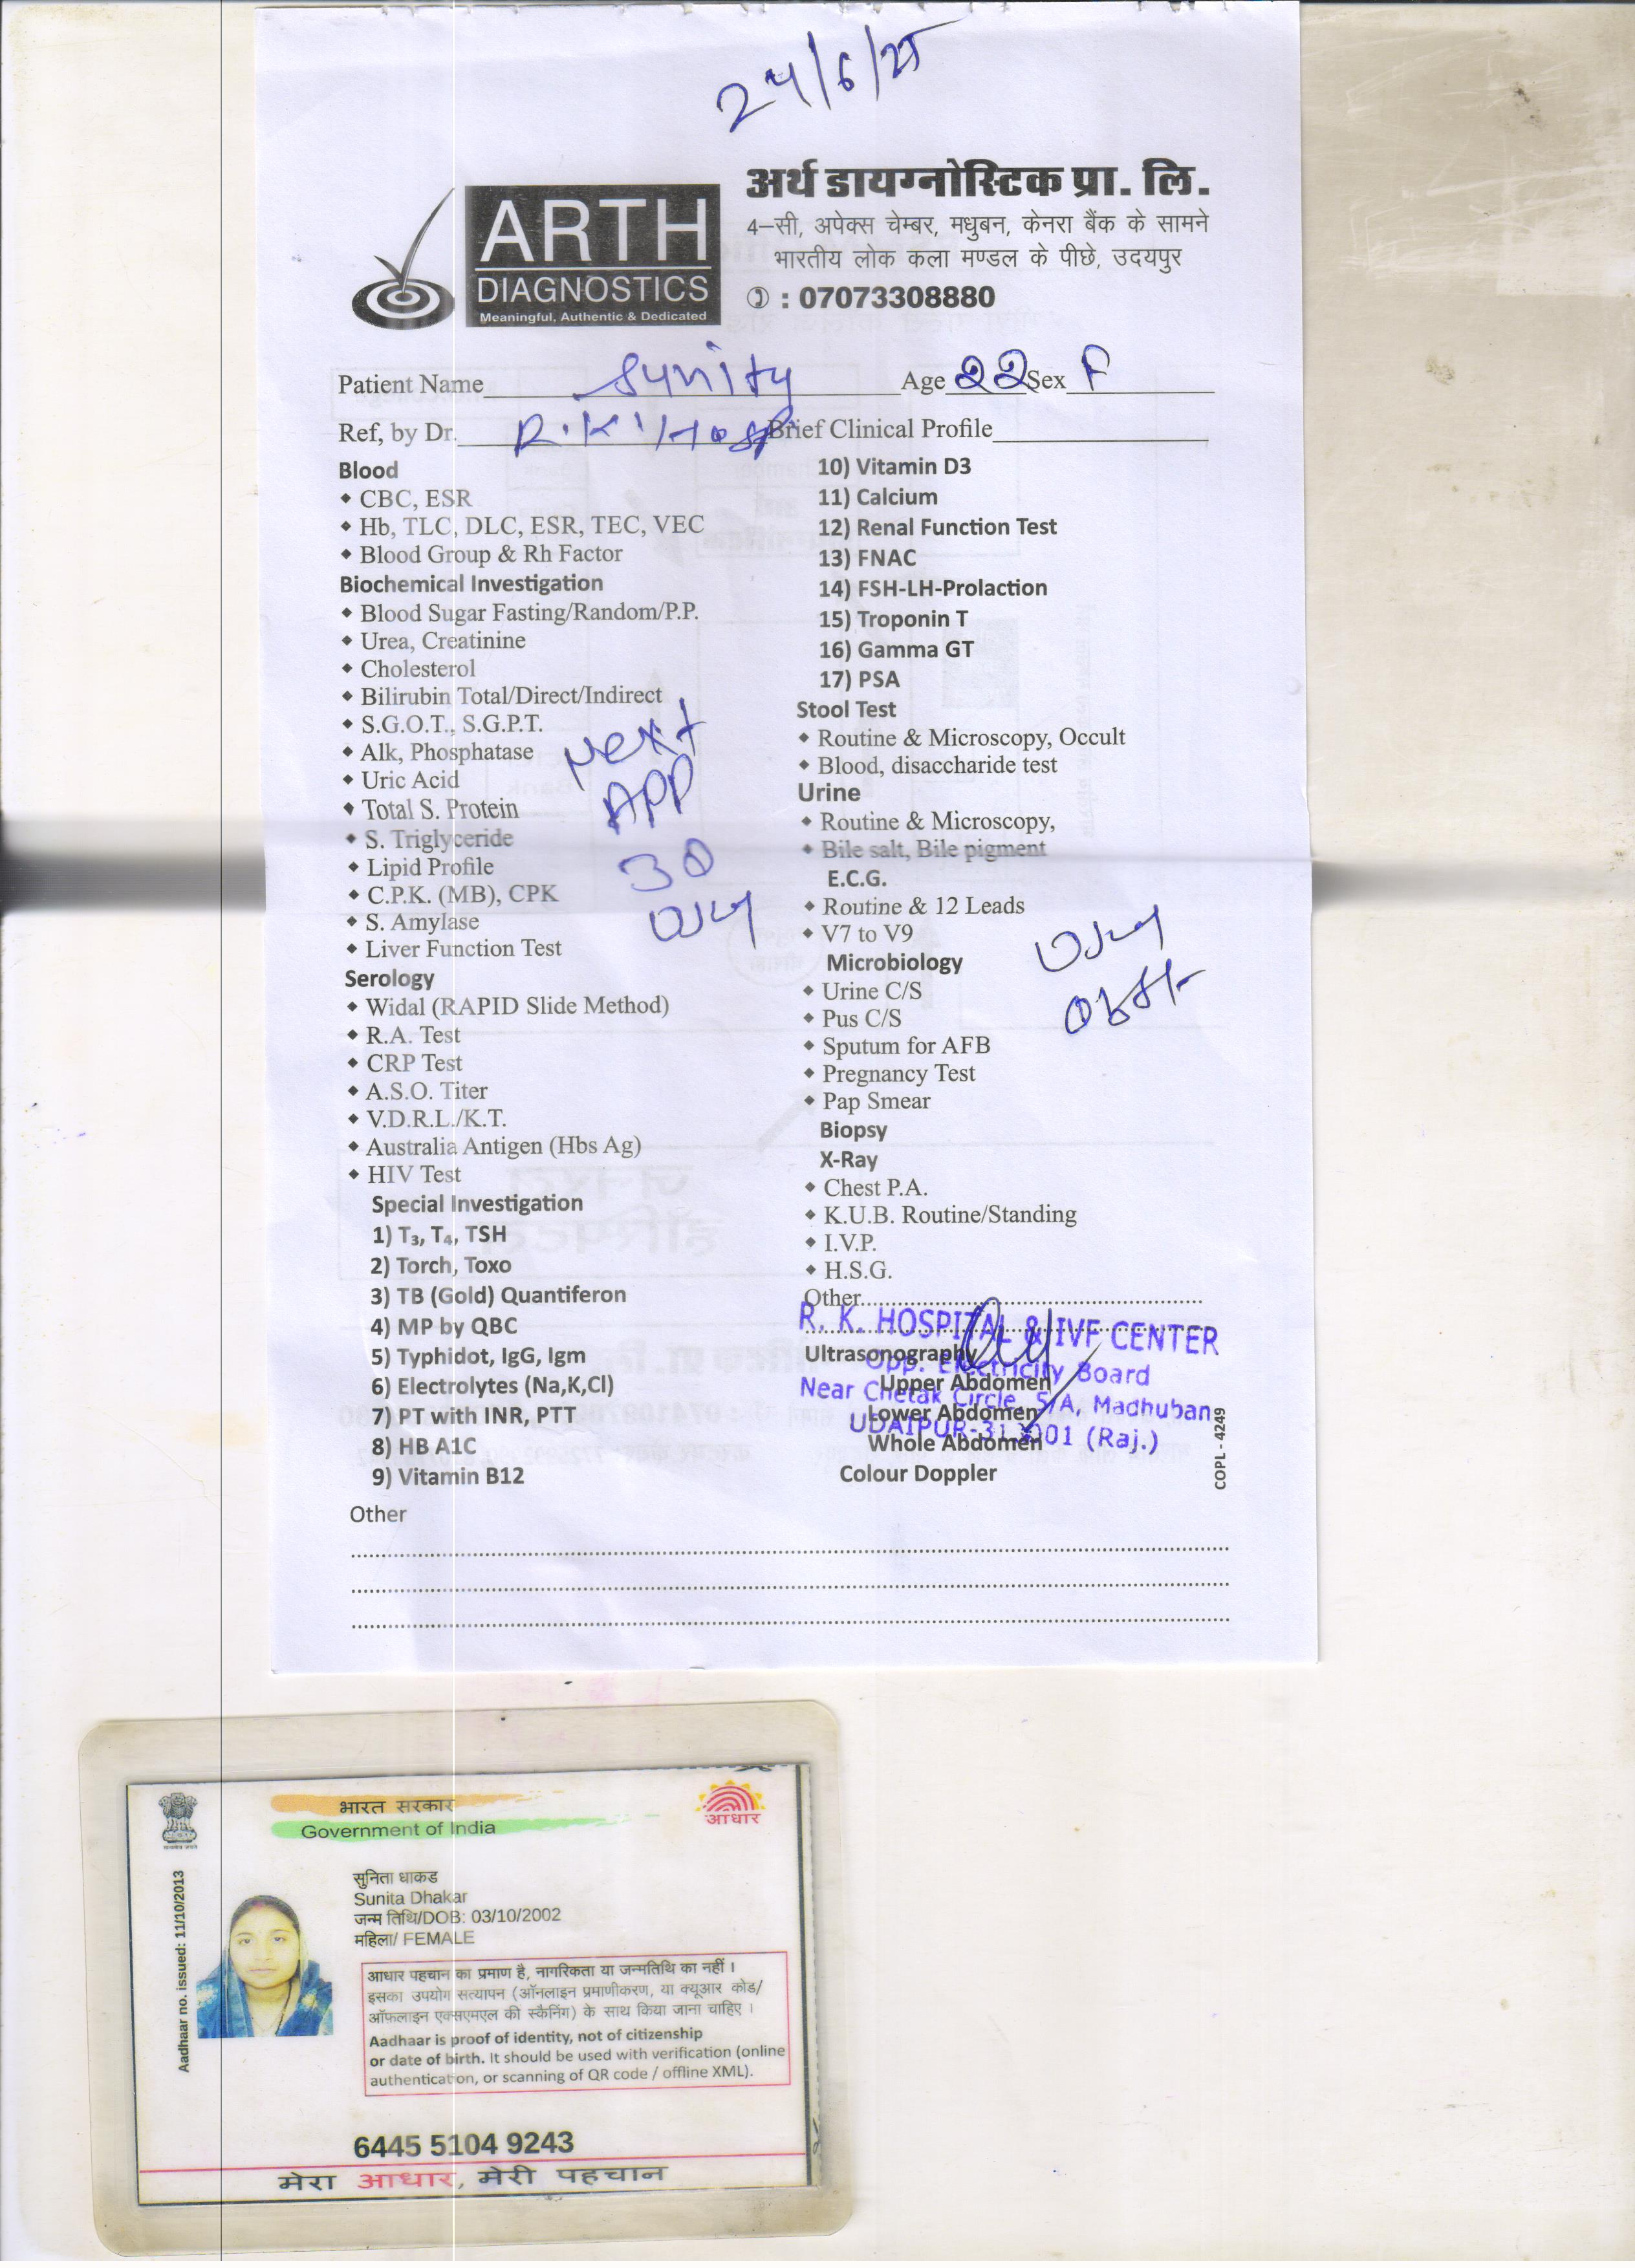 24/6/25
ARTH
DIAGNOSTICS
Meaningful, Authentic & Dedicated
अर्थ डायग्नोस्टिक प्रा. लि.
4–सी, अपेक्स चेम्बर, मधुबन, केनरा बैंक के सामने
भारतीय लोक कला मण्डल के पीछे, उदयपुर
: 07073308880
Patient Name Sunita Age 22 Sex F
Ref, by Dr. R.K. Hosp Brief Clinical Profile
Blood
CBC, ESR
Hb, TLC, DLC, ESR, TEC, VEC
Blood Group & Rh Factor
Biochemical Investigation
Blood Sugar Fasting/Random/P.P.
Urea, Creatinine
Cholesterol
Bilirubin Total/Direct/Indirect
S.G.O.T., S.G.P.T.
Alk, Phosphatase
Uric Acid
Total S. Protein
S. Triglyceride
Lipid Profile
C.P.K. (MB), CPK
S. Amylase
Liver Function Test
Next
APP
30
Serology
Widal (RAPID Slide Method)
R.A. Test
CRP Test
A.S.O. Titer
V.D.R.L./K.T.
Australia Antigen (Hbs Ag)
HIV Test
Special Investigation
1) T₃, T₄, TSH
2) Torch, Toxo
3) TB (Gold) Quantiferon
4) MP by QBC
5) Typhidot, IgG, Igm
6) Electrolytes (Na,K,Cl)
7) PT with INR, PTT
8) HB A1C
9) Vitamin B12
10) Vitamin D3
11) Calcium
12) Renal Function Test
13) FNAC
14) FSH-LH-Prolaction
15) Troponin T
16) Gamma GT
17) PSA
Stool Test
Routine & Microscopy, Occult
Blood, disaccharide test
Urine
Routine & Microscopy,
Bile salt, Bile pigment
E.C.G.
Routine & 12 Leads
V7 to V9
Microbiology
Urine C/S
Pus C/S
Sputum for AFB
Pregnancy Test
Pap Smear
Biopsy
X-Ray
Chest P.A.
K.U.B. Routine/Standing
I.V.P.
H.S.G.
Other
R. K. HOSPITAL & IVF CENTER
Opp. Electricity Board
Near Chetak Circle, 5/A, Madhuban
UDAIPUR-313001 (Raj.)
Ultrasonography
Upper Abdomen
Lower Abdomen
Whole Abdomen
Colour Doppler
COPL - 4249
Other
भारत सरकार
Government of India
आधार
Aadhaar no. issued: 11/10/2013
सुनिता धाकड
Sunita Dhakar
जन्म तिथि/DOB: 03/10/2002
महिला/ FEMALE
आधार पहचान का प्रमाण है, नागरिकता या जन्मतिथि का नहीं ।
इसका उपयोग सत्यापन (ऑनलाइन प्रमाणीकरण, या क्यूआर कोड/
ऑफलाइन एक्सएमएल की स्कैनिंग) के साथ किया जाना चाहिए ।
Aadhaar is proof of identity, not of citizenship
or date of birth. It should be used with verification (online
authentication, or scanning of QR code / offline XML).
6445 5104 9243
मेरा आधार, मेरी पहचान